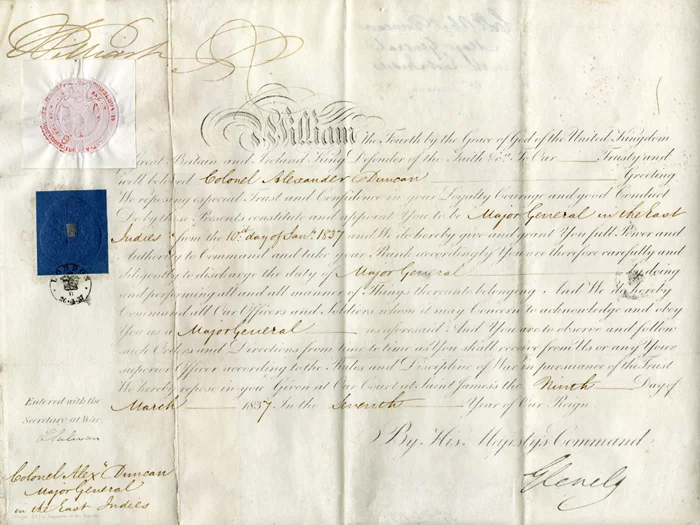 William R
William the Fourth by the Grace of God of the United Kingdom
Great Britain and Ireland King Defender of the Faith &c. To Our Trusty and
well beloved Colonel Alexander Duncan Greeting
We reposing especial Trust and Confidence in your Loyalty Courage and good Conduct
Do by these Presents constitute and appoint You to be Major General in the East
Indies from the 10th day of Jany. 1837 and We do hereby give and grant You full Power and
Authority to Command and take your Rank accordingly You are therefore carefully and
diligently to discharge the duty of Major General by doing
and performing all and all manner of Things thereunto belonging And We do hereby
Command all Our Officers and Soldiers whom it may Concern to acknowledge and obey
You as a Major General as aforesaid And You are to observe and follow
such Orders and Directions from time to time as You shall receive from Us or any Your
superior Officer according to the Rules and Discipline of War in pursuance of the Trust
We hereby repose in you Given at Our Court at Saint James's the Ninth Day of
March 1837 In the Seventh Year of Our Reign
By His Majesty's Command
Glenelg
Entered with the
Secretary at War
Colonel Alexr. Duncan
Major General
in the East Indies
LONDON